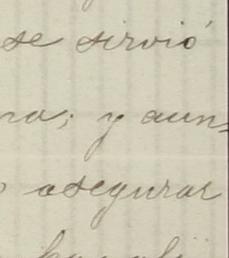 se sirvió
na; y aun-
asegurar